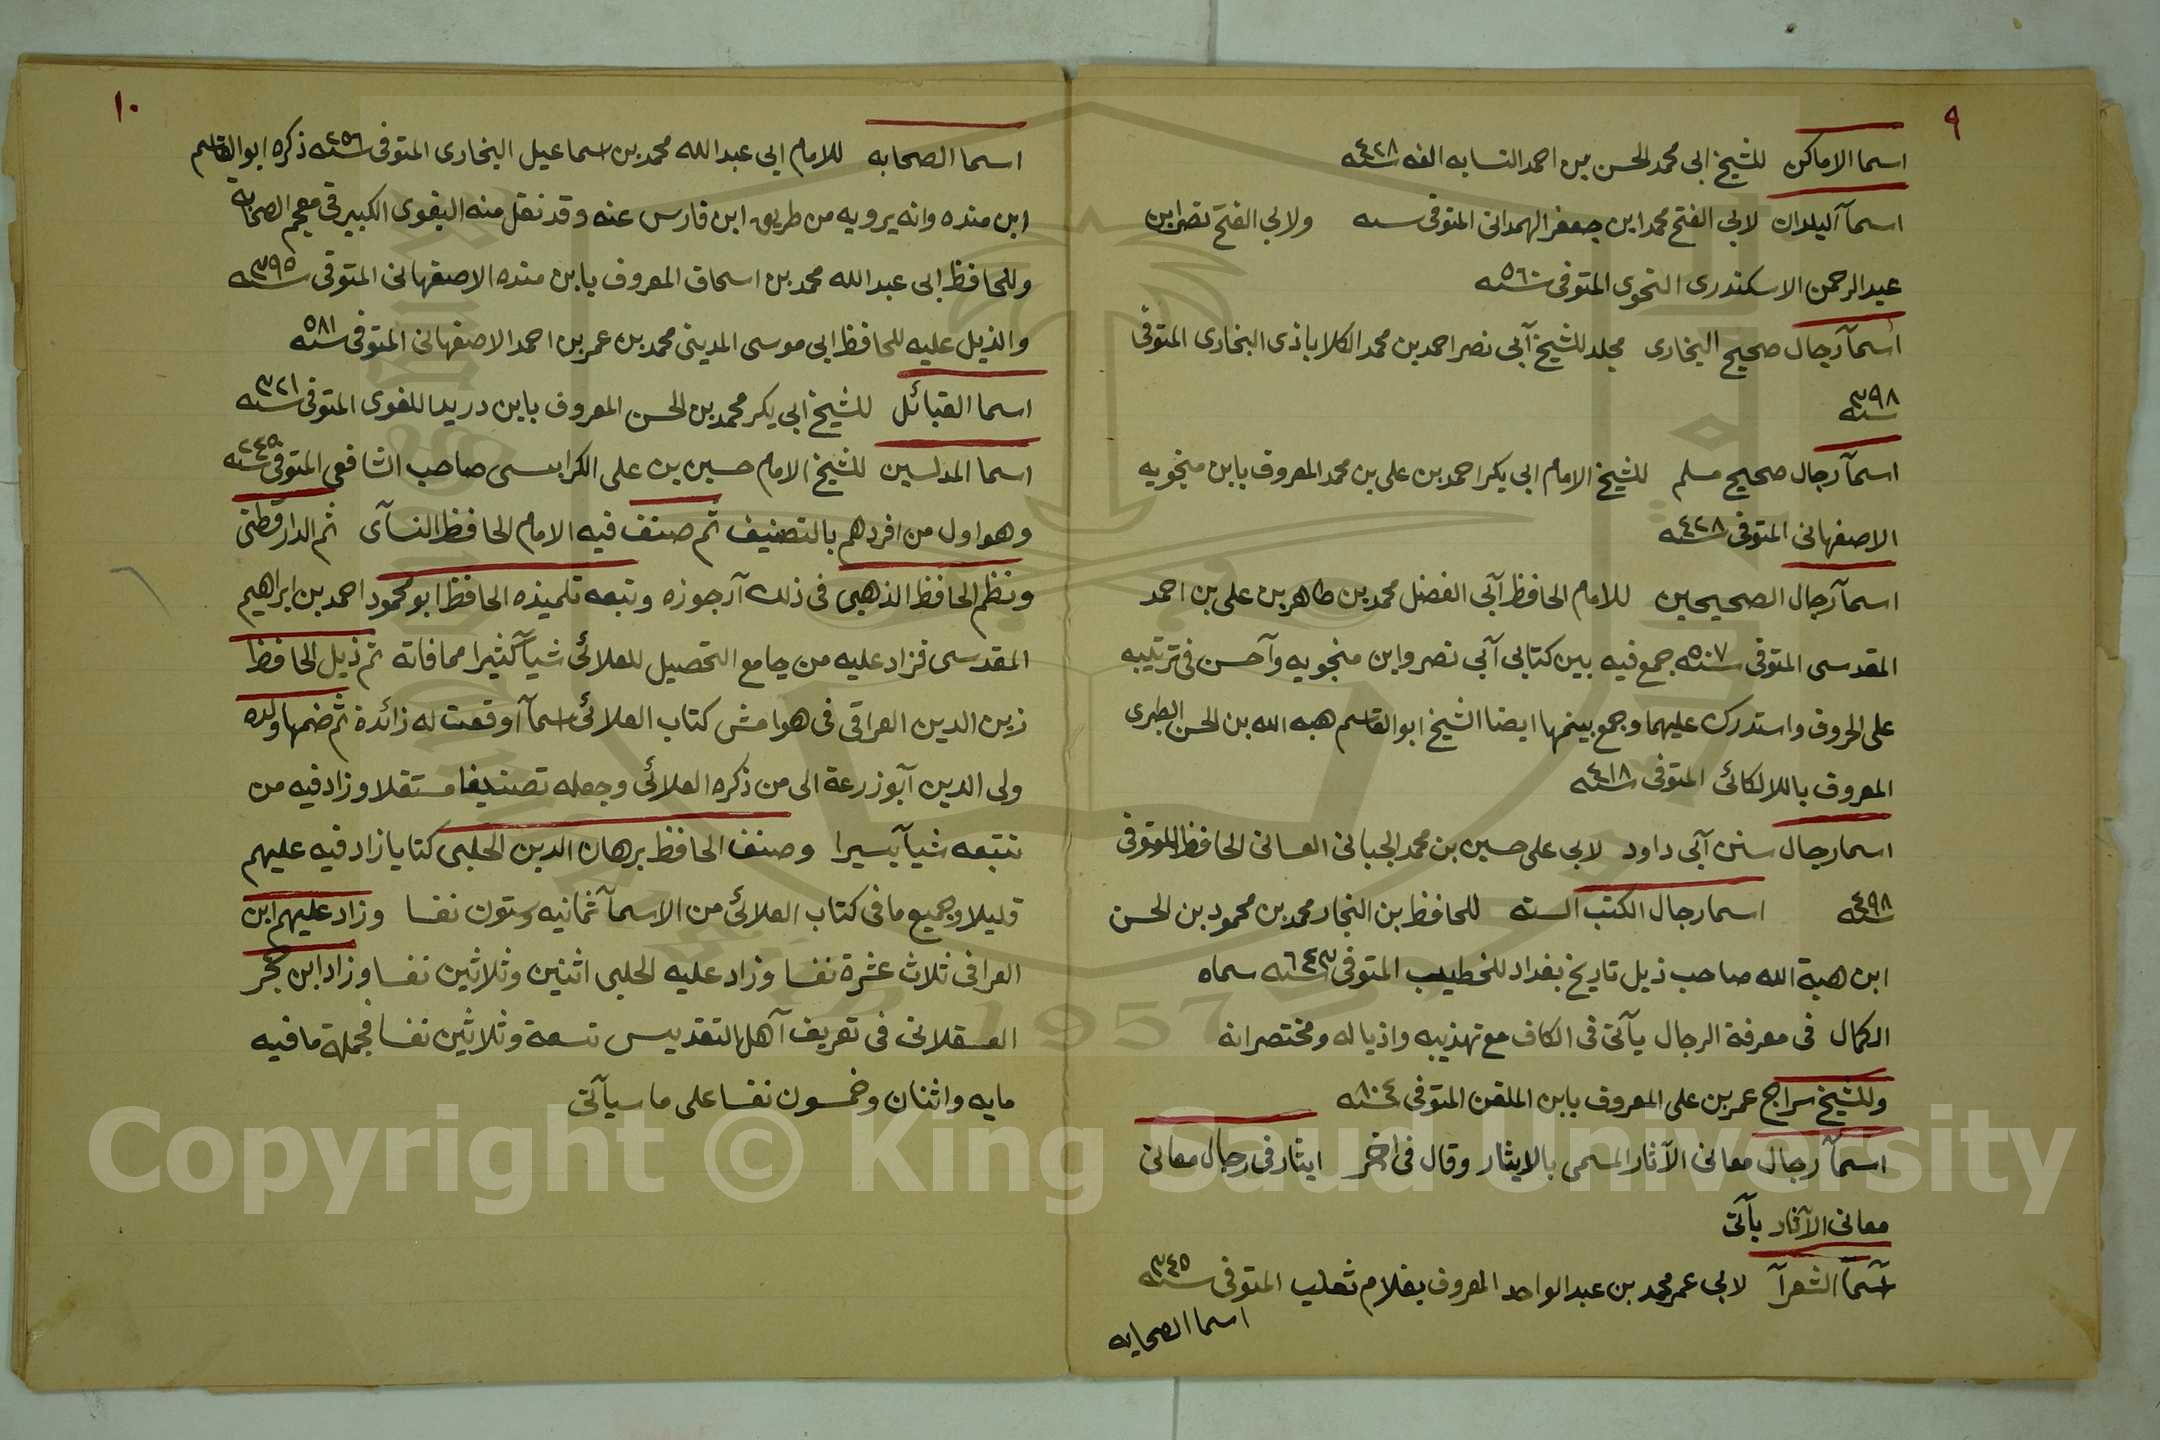 ٩
اسما الاماكن للشيخ ابى محمد الحسن بن احمد النسابه الفه سنه ٤٢٨
اسمآ البلدان لابي الفتح محمد ابن جعفر الهمدانى المتوفى سنه ولابي الفتح نصر ابن
عبد الرحمن الاسكندرى النحوى المتوفى سنه ٥٦٠
اسمآ رجال صحيح البخارى مجلد للشيخ آبى نصر احمد بن محمد الكلاباذى البخارى المتوفى
سنه ٣٩٨
اسمآ رجال صحيح مسلم للشيخ الامام ابى بكر احمد بن على بن محمد المعروف بابن منجويه
الاصفهانى المتوفى سنه ٤٢٨
اسمآ رجال الصحيحين للامام الحافظ آبى الفضل محمد بن طاهر بن على بن احمد
المقدسى المتوفى سنه ٥٠٧ جمع فيه بين كتابى آبى نصر وابن منجويه وآحسن فى ترتيبه
على الحروف واستدرك عليهما وجمع بينهما ايضا الشيخ ابو القاسم هبه الله بن الحسن الطبرى
المعروف باللالكائى المتوفى سنه ٤١٨
اسما رجال سنن آبى داود لابي على حسين بن محمد الجبانى الغسانى الحافظ المتوفى
سنه ٤٩٨ اسما رجال الكتب السته للحافظ بن النجار محمد بن محمود بن الحسن
ابن هبة الله صاحب ذيل تاريخ بغداد للخطيب المتوفى سنه ٦٤٣ سماه
الكمال فى معرفة الرجال يآتى فى الكاف مع تهذيبه واذياله ومختصراته
وللشيخ سراج عمر بن على المعروف بابن الملقن المتوفى سنه ٨٠٤
اسمآ رجال معانى الآثار المسمى بالايثار وقال فى اخر ايثار فى رجال معانى
معانى الآثار يآتى
آسمآ الشعرآ لابي عمر محمد بن عبد الواحد المعروف بغلام ثعلب المتوفى سنه ٣٤٥
اسما الصحابه
١٠
اسما الصحابه للامام ابي عبد الله محمد بن اسماعيل البخارى المتوفى سنه ٢٥٦ ذكره ابو القاسم
ابن منده وانه يرويه من طريق ابن فارس عنه وقد نقل منه البغوى الكبير فى معجم الصحابة
وللحافظ ابى عبد الله محمد بن اسحاق المعروف بابن منده الاصفهانى المتوفى سنه ٣٩٥
والذيل عليه للحافظ ابى موسى المدينى محمد بن عمر بن احمد الاصفهانى المتوفى سنه ٥٨١
اسما القبائل للشيخ ابى بكر محمد بن الحسن المعروف بابن دريد اللغوى المتوفى سنه ٣٢١
اسما المدلسين للشيخ الامام حسين بن على الكرابسى صاحب الشافعى المتوفى سنه ٢٤٥
وهو اول من افردهم بالتصنيف ثم صنف فيه الامام الحافظ النسآى ثم الدارقطنى
ونظم الحافظ الذهبى فى ذلك آرجوزه وتبعه تلميذه الحافظ ابو محمود احمد بن ابراهيم
المقدسى فزاد عليه من جامع التحصيل للعلائى شيآ كثيرا مما فاته ثم ذيل الحافظ
زين الدين العراقى فى هوامش كتاب العلائى اسمآ اوقعت له زائدة ثم ضمها ولده
ولى الدين آبو زرعة الى من ذكره العلائى وجعله تصنيفا مستقلا وزاد فيه من
تتبعه شيآ يسيرا وصنف الحافظ برهان الدين الحلبى كتابا زاد فيه عليهم
قليلا وجميع ما فى كتاب العلائى من الاسمآ ثمانيه وستون نفسا وزاد عليهم ابن
العراقى ثلاث عشرة نفسا وزاد عليه الحلبى اثنين وثلاثين نفسا وزاد ابن حجر
العسقلانى فى تعريف آهل التقديس تسعة وثلاثين نفسا فجملة ما فيه
مايه واثنان وخمسون نفسا على ما سيآتى
Copyright © King Saud University
1957